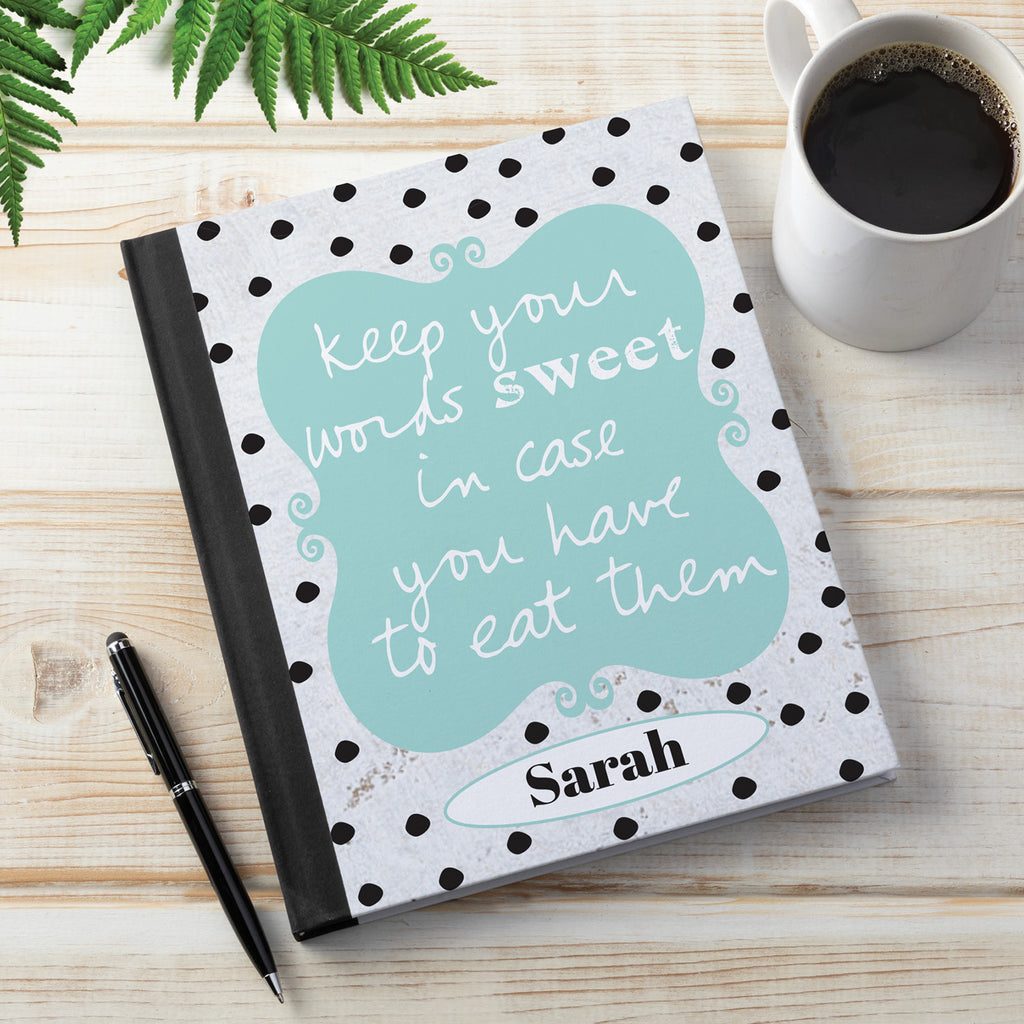 keep your
words sweet
in case
you have
to eat them
Sarah